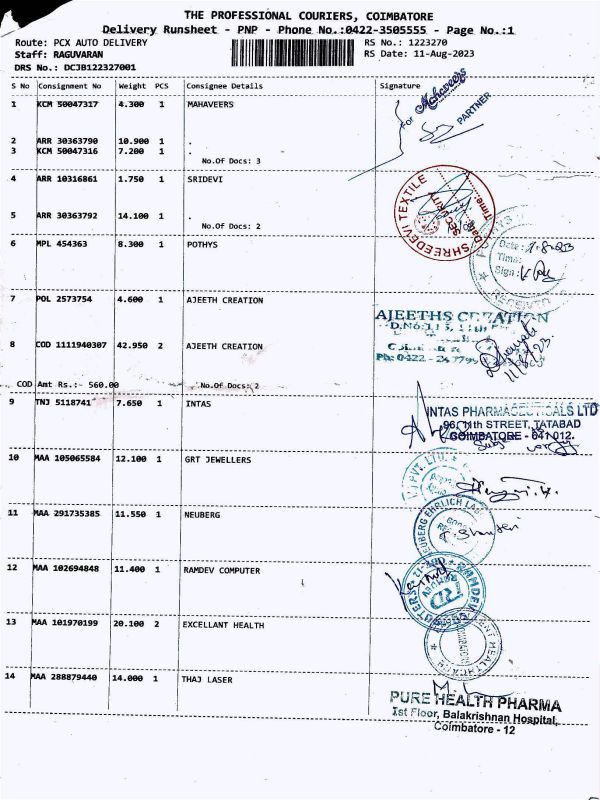 THE PROFESSIONAL COURIERS, COIMBATORE
Delivery Runsheet - PNP - Phone No.:0422-3505555 - Page No.:1
Route: PCX AUTO DELIVERY RS No.: 1223270
Staff: RAGUVARAN RS Date: 11-Aug-2023
DRS No.: DCJB122327001
S No Consignment No Weight PCS Consignee Details Signature
1 KCM 50047317 4.300 1 MAHAVEERS
For Mahaveers
PARTNER
2 ARR 30363790 10.900 1 .
3 KCM 50047316 7.200 1 .
No.Of Docs: 3
4 ARR 10316861 1.750 1 SRIDEVI
SHREEDEVI TEXTILE
Date: Time:
5 ARR 30363792 14.100 1 .
No.Of Docs: 2
6 MPL 454363 8.300 1 POTHYS
Date:
Time:
Sign:
7 POL 2573754 4.600 1 AJEETH CREATION
AJEETHS CREATION
8 COD 1111940307 42.950 2 AJEETH CREATION
11/8/23
COD Amt Rs.:- 560.00 No.Of Docs: 2
9 TNJ 5118741 7.650 1 INTAS
INTAS PHARMACEUTICALS LTD
96, 11th STREET, TATABAD
COIMBATORE - 641 012.
10 MAA 105065584 12.100 1 GRT JEWELLERS
PVT. LTD.
11 MAA 291735385 11.550 1 NEUBERG
NEUBERG EHRLICH LAB
12 MAA 102694848 11.400 1 RAMDEV COMPUTER
13 MAA 101970199 20.100 2 EXCELLENT HEALTH
14 MAA 288879440 14.000 1 THAJ LASER
PURE HEALTH PHARMA
1st Floor, Balakrishnan Hospital,
Coimbatore - 12